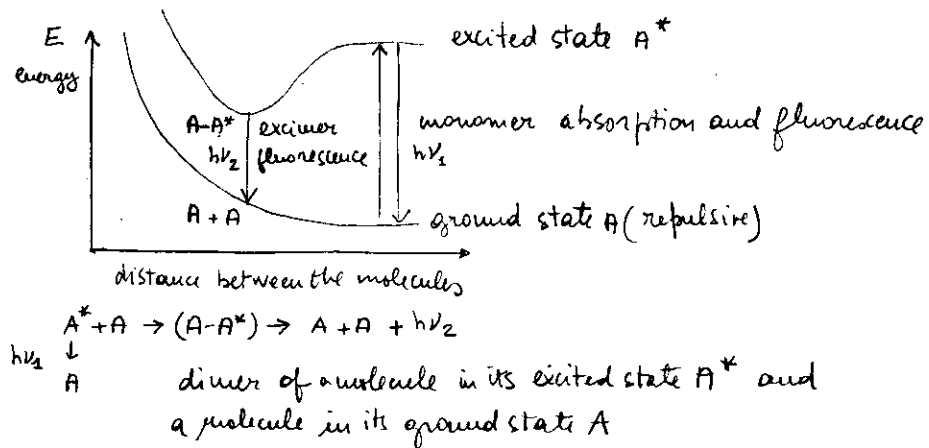 E
energy
excited state A*
A-A*
hν₂
excimer
fluorescence
monomer absorption and fluorescence
hν₁
A + A
ground state A (repulsive)
distance between the molecules
A* + A → (A-A*) → A + A + hν₂
hν₁ ↓
A
dimer of a molecule in its excited state A* and
a molecule in its ground state A